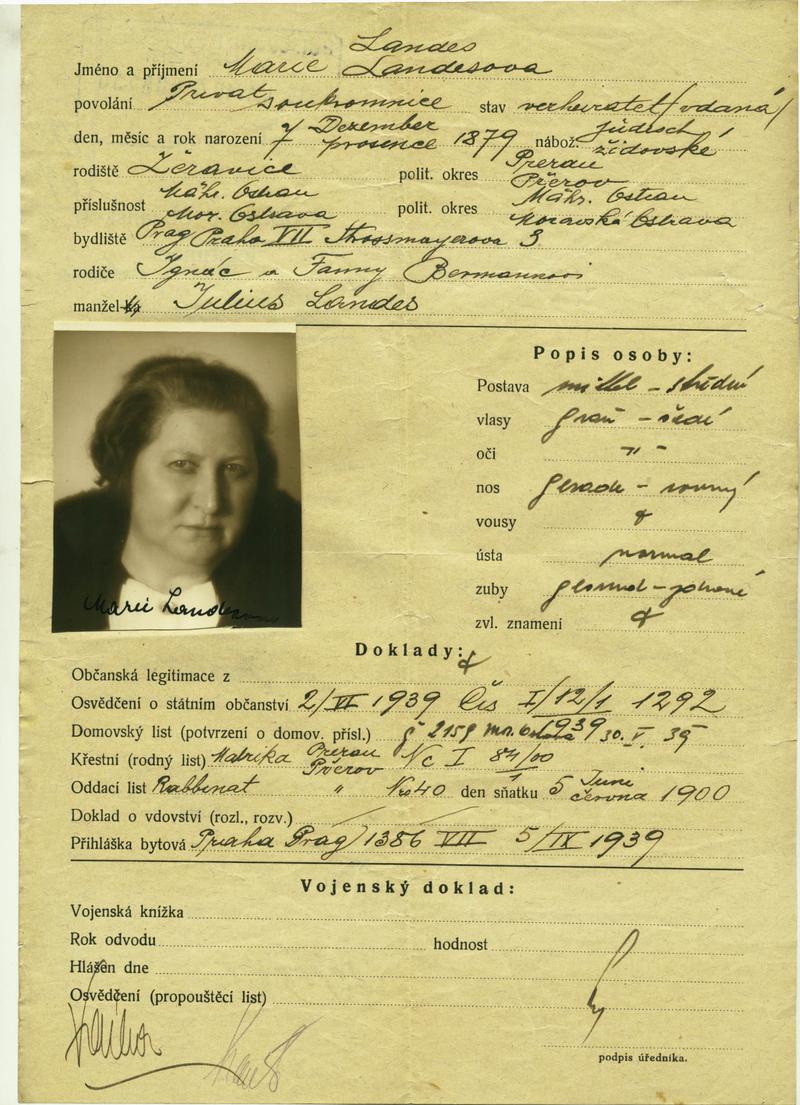 Landes
Jméno a příjmení Marie Landesova
povolání Privat soukromnice stav verheiratet/vdaná/
den, měsíc a rok narození 7 Dezember prosence 1879 nábož. jüdisch židovské
rodiště Žeravice polit. okres Prerau Přerov
příslušnost Mähr. Ostrau Mor. Ostrava polit. okres Mähr. Ostrau Moravská Ostrava
bydliště Prag Praha VII Strossmayerova 3
rodiče Ignác a Fanny Bermannovi
manžel-ka Julius Landes
Popis osoby:
Postava mittel - střední
vlasy grau - šedí
oči " "
nos gerade - rovný
vousy
ústa normal
zuby gesund - zdravé
zvl. znamení
Marie Landesova
Doklady:
Občanská legitimace z
Osvědčení o státním občanství 2/VI 1939 Čis I/12/1 1292
1939
Domovský list (potvrzení o domov. přísl.) č 2159 30. V. 39
Křestní (rodný list) Matrika Prerau Přerov Nc I 84/00
1
Oddací list Rabbinat " No 40 den sňatku 5 Juni června 1900
Doklad o vdovství (rozl., rozv.)
Přihláška bytová Praha Prag/1386 VII 5/IX 1939
Vojenský doklad:
Vojenská knížka
Rok odvodu hodnost
Hlášen dne
Osvědčení (propouštěcí list)
podpis úředníka.